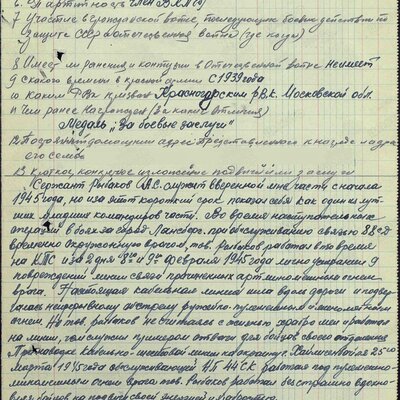 6. Партийность член ВКП(б)
7 Участие в гражданской войне, последующих боевых действиях по
защите СССР и отечественной войне (где когда)
8 Имеет ли ранения и контузии в Отечественной войне не имеет
9 с какого времени в красной армии С 1939 года
10 каким РВК призван Красногорским РВК. Московской обл.
11 Чем ранее награжден (за какие отличия)
Медаль "За боевые заслуги"
12 Постоянный домашний адрес представляемого к награде и адрес
его семьи
13 Краткое, конкретное изложение подвига или заслуги
Сержант Рыбаков А.С. служит вверенной мне части с начала
1945 года, но за этот короткий срок показал себя как один из луч-
ших младших командиров части. Во время наступательных
операций в боях за город Лансберг, при обслуживании связью 88 сд
временно окруженную врагом, тов. Рыбаков работал в это время
на КПС и за 2 дня 8го и 9го февраля 1945 года лично устранил 9
повреждений линии связи причиненных артминометным огнем
врага. Настоящая кабельная линия шла вдоль дороги и подвер-
галась непрерывному обстрелу ружейно-пулеметным и минометным
огнем. Но тов. Рыбаков не считаясь с жизнью храбро шел и работал
на линии, чем служил примером отваги для бойцов своего отделения
При наводке кабельно-шестовой линии на окраину Хайльсберга 25го
марта 1945 года обслуживающей НП 44 СК работая под пулеметно-
минометным огнем врага тов. Рыбаков работал бесстрашно вдохно-
вляя бойцов на подвиг своей энергией и храбростью.